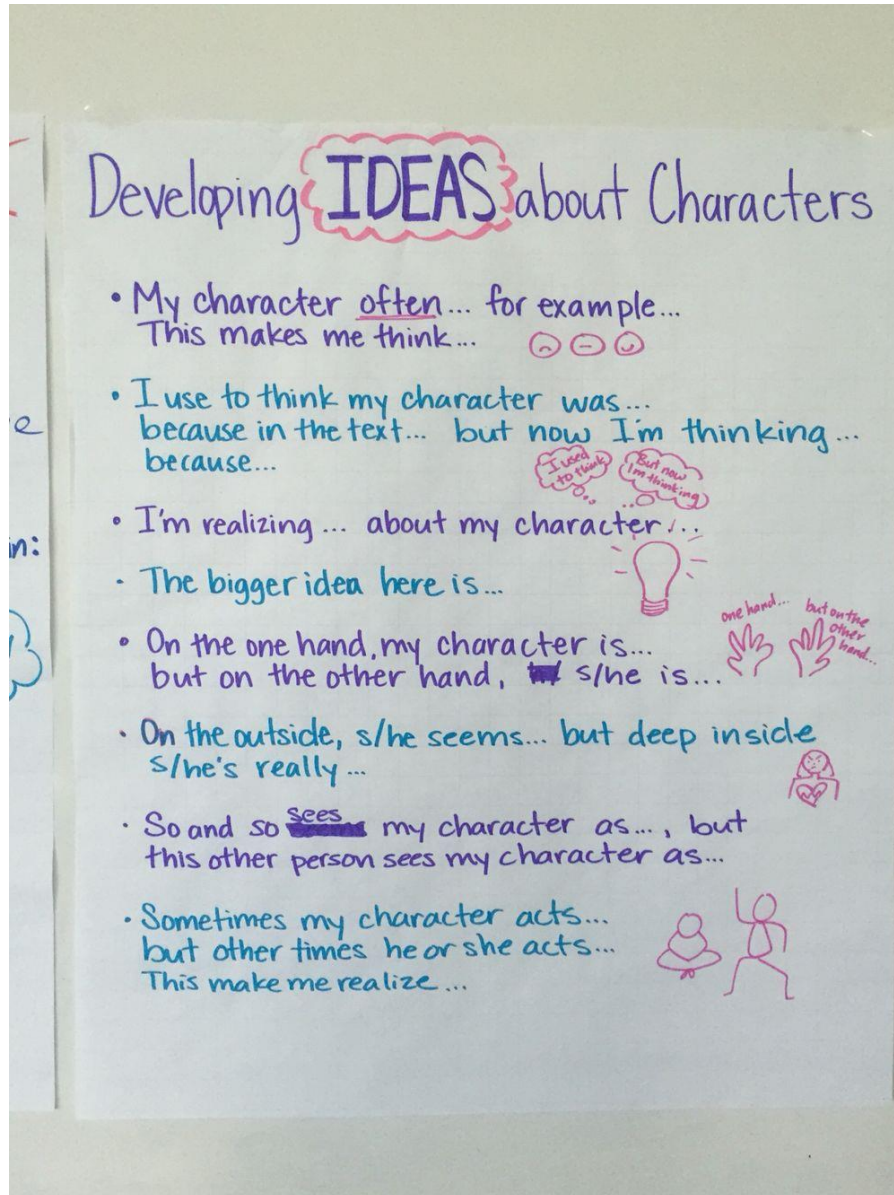 Developing IDEAS about Characters
• My character often... for example...
This makes me think...
• I use to think my character was...
because in the text... but now I'm thinking...
because...
I used
to think
But now
I'm thinking
• I'm realizing... about my character...
• The bigger idea here is...
one hand...
but on the
other
hand...
• On the one hand, my character is...
but on the other hand, s/he is...
• On the outside, s/he seems... but deep inside
s/he's really...
• So and so sees my character as..., but
this other person sees my character as...
• Sometimes my character acts...
but other times he or she acts...
This make me realize...
e
n: